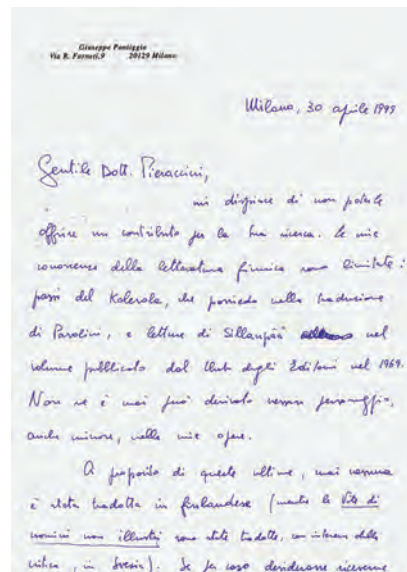 Giuseppe Pontiggia
Via R. Farneti, 9 20129 Milano
Milano, 30 aprile 1999
Gentile Dott. Pieraccini,
mi dispiace di non poterLe
offrire un contributo per la Sua ricerca. Le mie
conoscenze della letteratura finnica sono limitate:
passi del Kalevala, che possiedo nella traduzione
di Pavolini, e letture di Sillanpää nel
volume pubblicato dal Club degli Editori nel 1969.
Non ne è mai derivato nessun personaggio,
anche minore, nelle mie opere.
A proposito di queste ultime, mai nessuna
è stata tradotta in finlandese (mentre le Vite di
uomini non illustri sono state tradotte, con interesse della
critica, in Svezia). Se per caso desiderasse riceverne